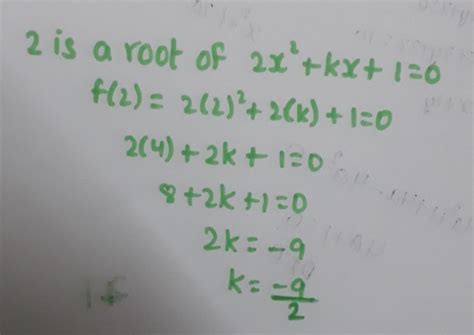 2 is a root of 2x²+kx+1=0
f(2) = 2(2)²+2(k)+1=0
2(4)+2k+1=0
8+2k+1=0
2k=-9
k=-9/2